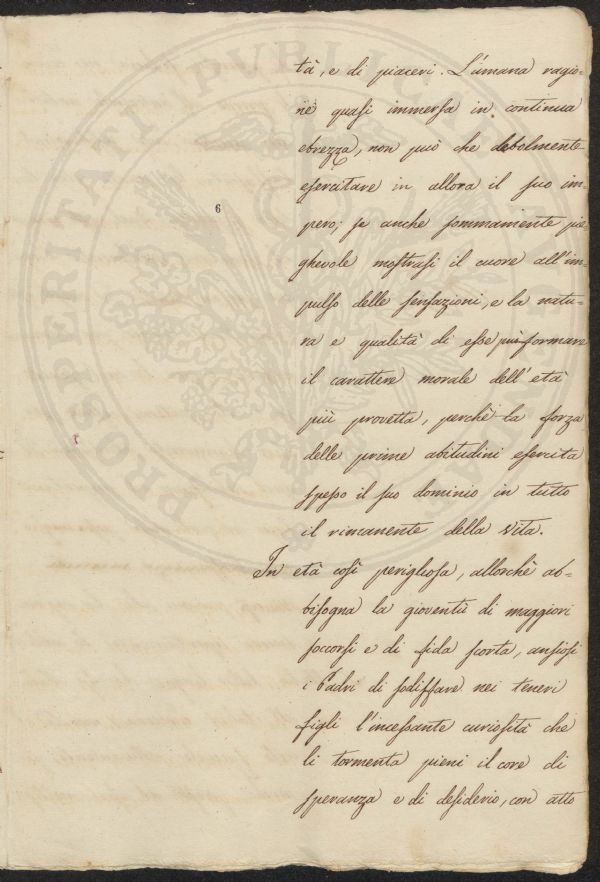 6
tà, e di piaceri. L'umana ragio-
ne quasi immersa in continua
ebrezza, non può che debolmente
esercitare in allora il suo im-
pero; se anche sommamente pie-
ghevole mostrasi il cuore all'im-
pulso delle sensazioni, e la natu-
ra e qualità di esse può formare
il carattere morale dell'età
più provetta, perchè la forza
delle prime abitudini esercita
spesso il suo dominio in tutto
il rimanente della vita.
In età così perigliosa, allorchè ab-
bisogna la gioventù di maggiori
soccorsi e di fida scorta, ansiosi
i Padri di sodisfare nei teneri
figli l'incessante curiosità che
li tormenta pieni il core di
speranza e di desiderio, con atto
PROSPERITATI PVBLICAE AVG